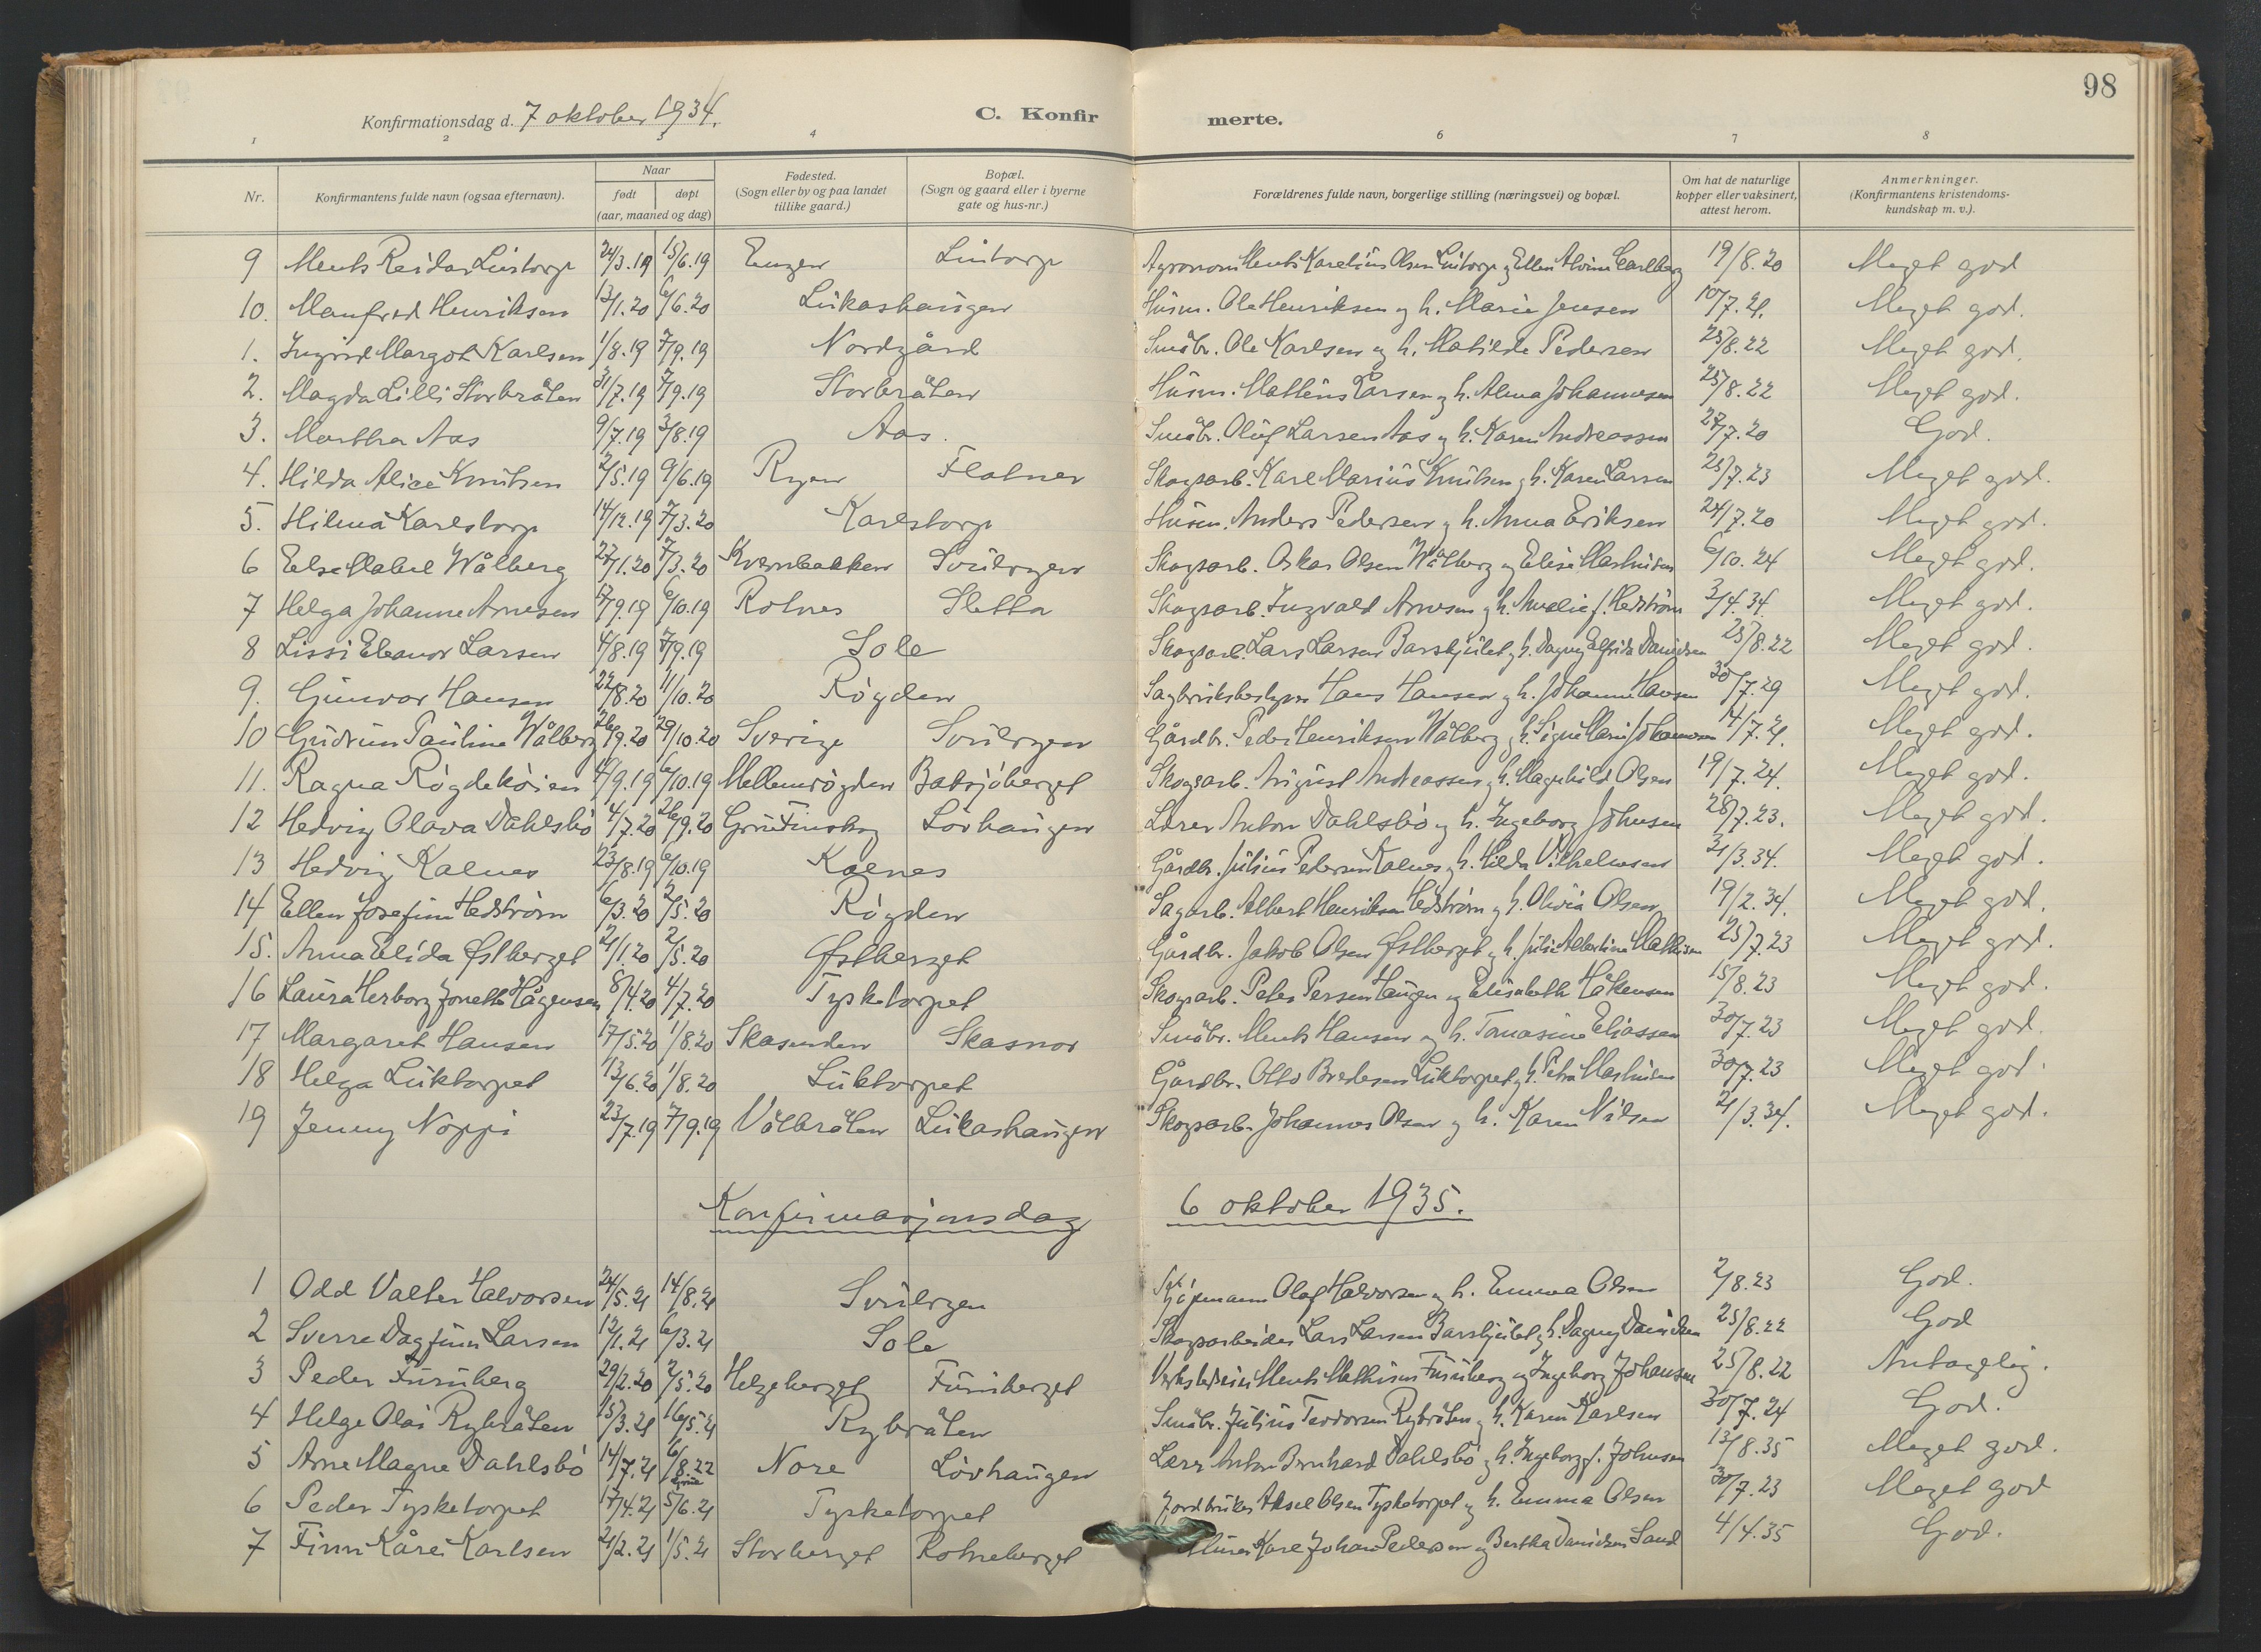 98
Konfirmationsdag d. 7 oktober 1934. C. Konfirmerte.
1 2 3 4 6 7 8
Nr. Konfirmantens fulde navn (ogsaa efternavn). Naar født døpt (aar, maaned og dag) Fødested. (Sogn eller by og paa landet tillike gaard.) Bopæl. (Sogn og gaard eller i byerne gate og hus-nr.) Forældrenes fulde navn, borgerlige stilling (næringsvei) og bopæl. Om hat de naturlige kopper eller vaksinert, attest herom. Anmerkninger. (Konfirmantens kristendoms-kundskap m. v.).
9 Ments Reidar Lintorp 24/3.19 15/6.19 Enger Lintorp Agronom Ments Karelius Olsen Lintorp og Ellen Alvine Carlberg 19/8.20 Meget god
10. Manfred Henriksen 13/1.20 6/6.20 Lukashaugen Husm. Ole Henriksen og h. Marie Jensen 10/7.21. Meget god.
1. Ingrid Margot Karlsen 1/8.19 7/9.19 Nordgård Småbr. Ole Karlsen og h. Matilde Pedersen 25/8.22 Meget god.
2. Magda Lilli Storbråten 31/7.19 7/9.19 Storbråten Husm. Mattius Larsen og h. Alma Johannesen 25/8.22 Meget god.
3. Martha Aas 9/7.19 3/8.19 Aas. Småbr. Oluf Larsen Aas og h. Karen Andreassen 27/7.20 God.
4. Hilda Alice Knutsen 2/5.19 9/6.19 Ryen Flatner Skogsarb. Karl Marius Knutsen og h. Karen Larsen 25/7.23 Meget god.
5. Hilma Karlstorp 14/12.19 7/3.20 Karlstorp Husm. Anders Pedersen og h. Anna Eriksen 24/7.20 Meget god.
6 Else Mabel Wålberg 27/1.20 7/3.20 Kvernbakken Svulrygen Skogsarb. Oskar Olsen Wålberg og Elise Mathisen 6/10.24 Meget god.
7 Helga Johanne Arnesen 17/9.19 6/10.19 Rotnes Sletta Skogsarb. Ingvald Arnesen og h. Amalie f. Hedstrøm 3/4.34 Meget god.
8 Lissi Eleanor Larsen 4/8.19 7/9.19 Sole Skogsarb. Lars Larsen Barskjulet og h. Dagny Elfrida Danielsen 25/8.22 Meget god.
9. Gunvor Hansen 22/8.20 11/10.20 Røgden Sagbruksbestyrer Hans Hansen og h. Johanne Hansen 30/7.29 Meget god.
10 Gudrun Pauline Wålberg 26/9.20 29/10.20 Sverige Svulrygen Gårdbr. Peder Henriksen Wålberg og h. Signe Marie Johannesen 14/7.21. Meget god.
11. Ragna Røgdekøien 4/9.19 6/10.19 Mellemrøgden Baksjøberget Skogsarb. August Andreassen og h. Magnhild Olsen 19/7.24. Meget god.
12 Hedvig Olava Dahlsbø 4/7.20 26/9.20 Grue Finskog Løvhaugen Lærer Anton Dahlsbø og h. Ingeborg Johnsen 28/7.23. Meget god.
13 Hedvig Kalnes 23/8.19 6/10.19 Kalnes Gårdbr. Julius Pedersen Kalnes og h. Hilda Vilhelmsen 21/3.34. Meget god.
14 Ellen Josefine Hedstrøm 6/3.20 2/5.20 Røgden Sagarb. Albert Henriksen Hedstrøm og h. Olivia Olsen 19/2.34. Meget god.
15. Anna Elida Østberget 21/1.20 2/5.20 Østberget Gårdbr. Jakob Olsen Østberget og h. Julie Albertine Mathisen 25/7.23 Meget god.
16 Laura Herborg Jonette Hågensen 8/4.20 4/7.20 Tysketorpet Skogsarb. Peter Persen Haugen og Elisabeth Håkensen 15/8.23 Meget god.
17 Margaret Hansen 17/5.20 1/8.20 Skasenden Skasnor Småbr. Ments Hansen og h. Tomasine Eliassen 30/7.23 Meget god.
18 Helga Luktorpet 13/6.20 1/8.20 Luktorpet Gårdbr. Otto Bredesen Luktorpet og h. Petra Mathisen 30/7.23 Meget god.
19 Jenny Noppi 23/7.19 7/9.19 Vålbråten Lukashaugen Skogsarb. Johannes Olsen og h. Karen Nilsen 21/3.34. Meget god.
Konfirmasjonsdag 6 oktober 1935.
1 Odd Valter Halvorsen 24/5.21 14/8.21 Svulrygen Kjøpmann Olaf Halvorsen og h. Emma Olsen 2/8.23 God.
2 Sverre Dagfinn Larsen 12/1.21 6/3.21 Sole Skogsarbeider Lars Larsen Barskjulet og h. Dagny Danielsen 25/8.22 God
3 Peder Furuberg 29/2.20 2/5.20 Helgeberget Furuberget Verkstedeier Ments Mathisen Furuberg og Ingeborg Johansen 25/8.22 Antagelig.
4 Helge Olai Rybråten 15/3.21 16/5.21 Rybråten Småbr. Julius Teodorsen Rybråten og h. Karen Karlsen 30/7.24 God.
5 Arne Magne Dahlsbø 14/7.21 6/8.22 Grue Nore Løvhaugen Lærer Anton Bernhard Dahlsbø og h. Ingeborg f. Johnsen 13/8.35 Meget god.
6 Peder Tysketorpet 17/4.21 5/6.21 Tysketorpet Jordbruker Aksel Olsen Tysketorpet og h. Emma Olsen 30/7.23 Meget god
7 Finn Kåre Karlsen 21/2.21 1/5.21 Storberget Rotneberget Karl Johan Pedersen og Bertha Danielsen Sand 4/4.35 God.